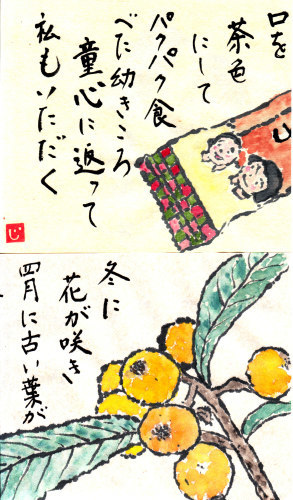 口を
茶色
にして
パクパク食
べた幼きころ
童心に返って
私もいただく
じ
冬に
花が咲き
四月に古い葉が